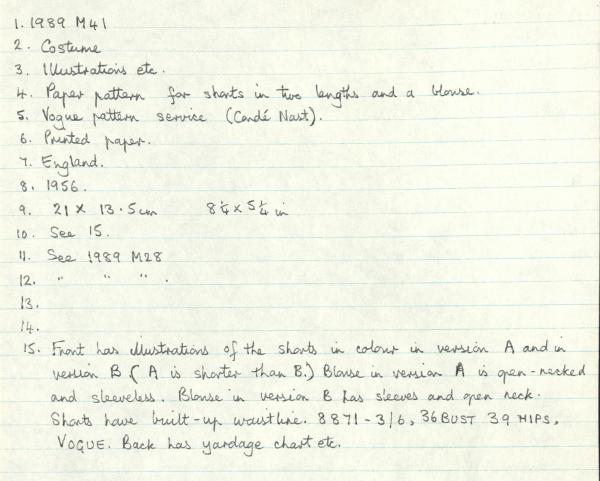 1. 1989 M41
2. Costume
3. Illustrations etc.
4. Paper pattern for shorts in two lengths and a blouse.
5. Vogue pattern service (Condé Nast).
6. Printed paper.
7. England.
8. 1956.
9. 21 x 13.5cm 8¼ x 5¼ in
10. See 15.
11. See 1989 M28
12. " " " .
13.
14.
15. Front has illustrations of the shorts in colour in version A and in
version B (A is shorter than B.) Blouse in version A is open-necked
and sleeveless. Blouse in version B has sleeves and open neck.
Shorts have built-up waistline. 8871-3/6, 36 BUST 39 HIPS,
VOGUE. Back has yardage chart etc.